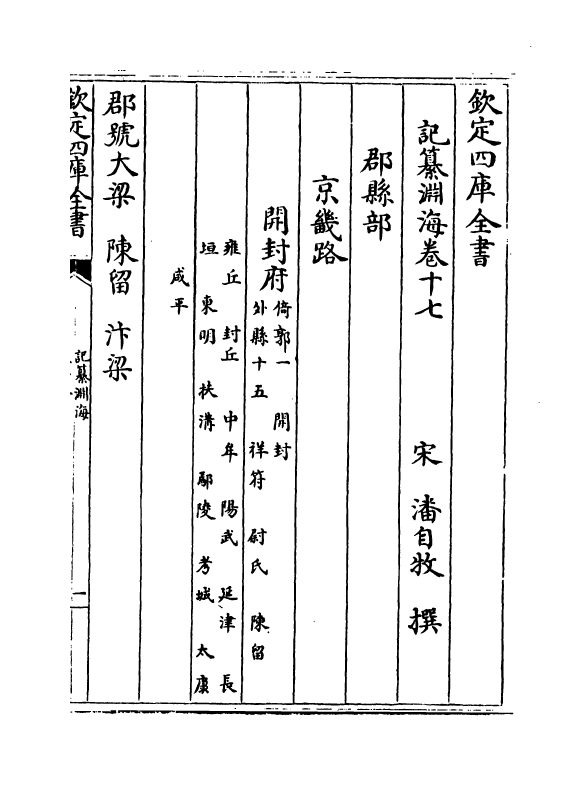 欽定四庫全書
記纂淵海卷十七
宋 潘自牧 撰
郡縣部
京畿路
開封府
倚郭一 開封
外縣十五 祥符 尉氏 陳留
雍丘 封丘 中牟 陽武 延津 長
垣 東明 扶溝 鄢陵 考城 太康
咸平
郡號大梁 陳留 汴梁
欽定四庫全書
記纂淵海
一